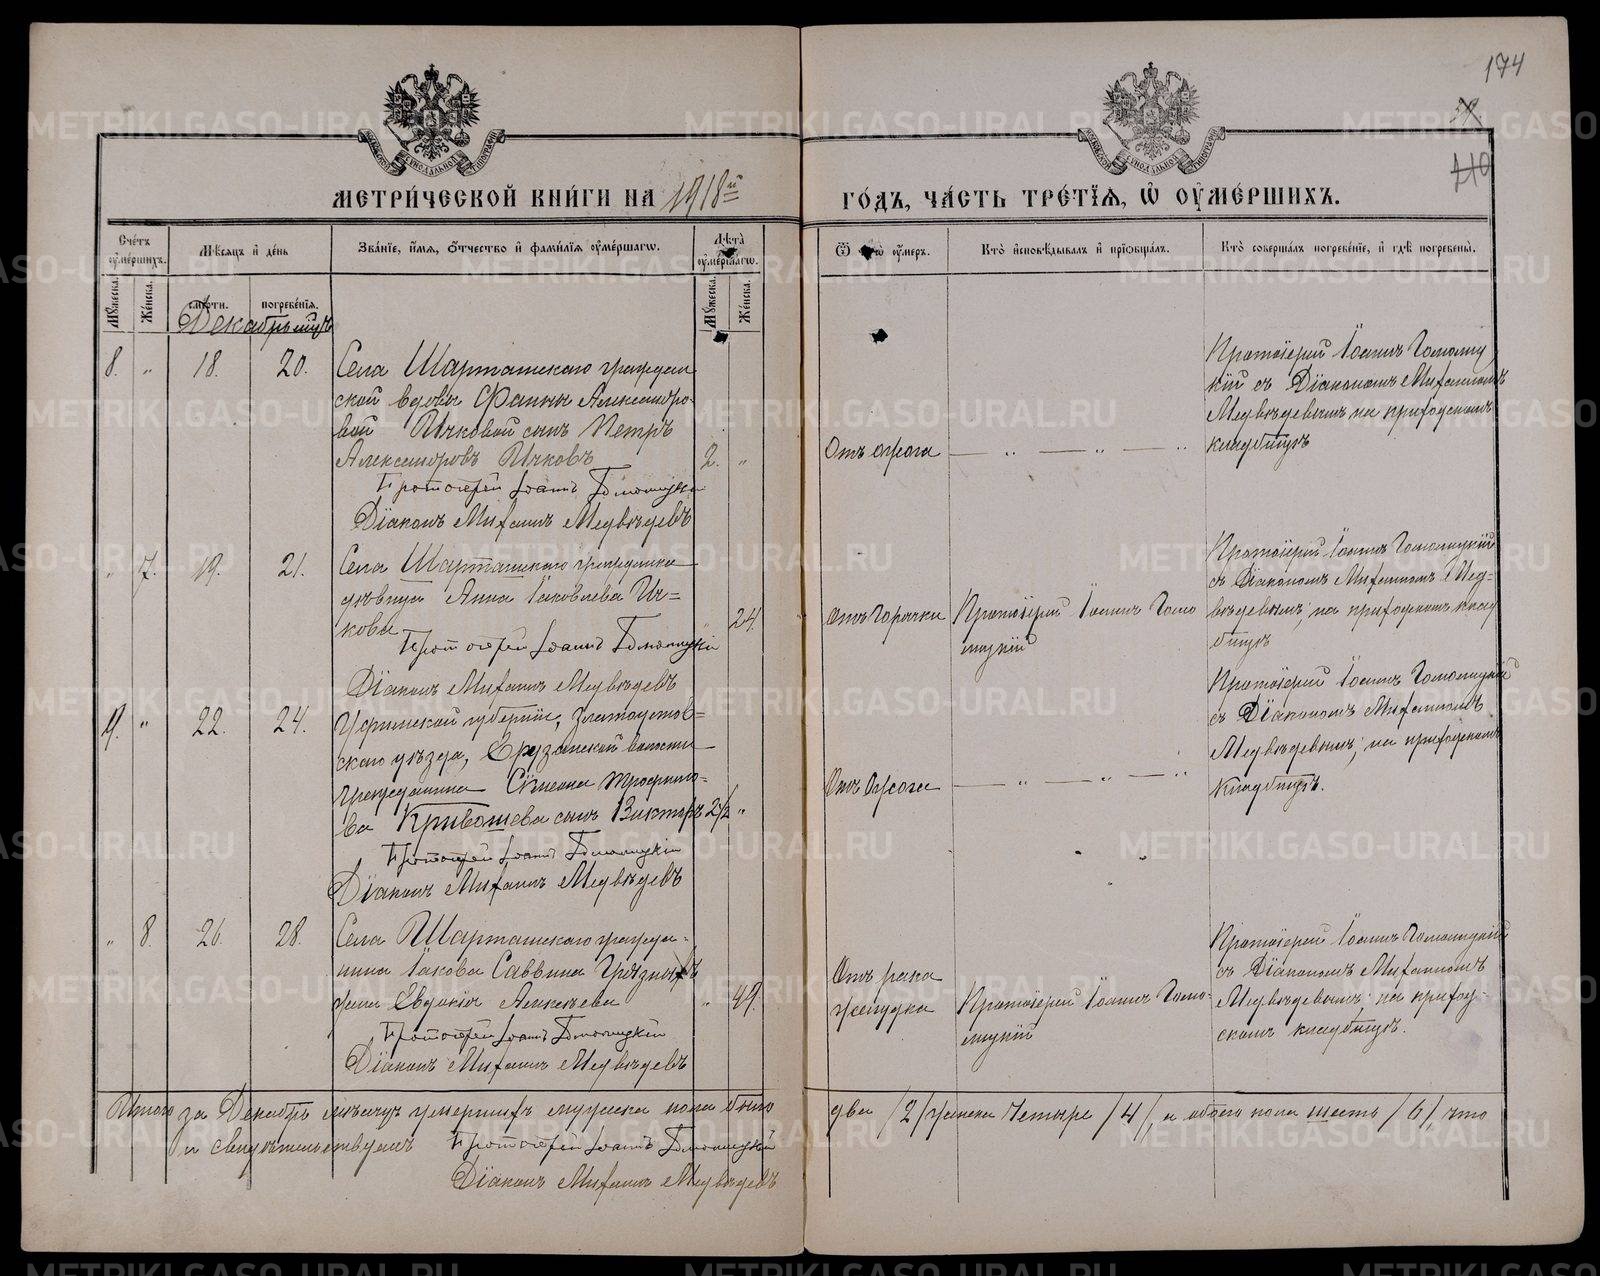 174
МЕТРИ́ЧЕСКОЙ КНИ́ГИ НА 1918й
ГО́ДЪ, ЧА́СТЬ ТРЕ́ТІЯ, Ѡ ОУМЕ́РШИХЪ.
Счетъ оумершихъ.
Мѣсяцъ и день
Званіе, имя, отчество и фамилія оумершагѡ.
Лѣта оумершагѡ.
Ѿ чегѡ оумеръ.
Кто исповѣдывалъ и пріобщалъ.
Кто совершалъ погребеніе, и гдѣ погребены.
Мужеска.
Женска.
смерти.
погребенія.
Мужеска.
Женска.
Декабрь мцъ
8. „ 18. 20.
Села Шарташскаго граждан
ской вдовы Фаины Александро-
вой Ичковой сынъ Петръ
Александровъ Ичковъ 2. „
Протоіерей Іоаннъ Гомолицкій
Діаконъ Михаилъ Медвѣдевъ
Отъ ожога
Протоіерей Іоаннъ Гомолиц
кій съ Діакономъ Михаиломъ
Медвѣдевымъ на приходскомъ
кладбищѣ
„ 7. 19. 21.
Села Шарташскаго гражданка
дѣвица Анна Іаковлева Ич=
кова 24.
Протоіерей Іоаннъ Гомолицкій
Діаконъ Михаилъ Медвѣдевъ
Отъ горячки
Протоіерей Іоаннъ Гомо
лицкій
Протоіерей Іоаннъ Гомолицкій
съ Діакономъ Михаиломъ Мед=
вѣдевымъ, на приходскомъ клад
бищѣ
9. „ 22. 24.
Уфимской губерніи, Златоустов=
скаго уѣзда, волости
гражданина Симеона Трофимо=
ва Кривошева сынъ Викторъ 2½ „
Протоіерей Іоаннъ Гомолицкій
Діаконъ Михаилъ Медвѣдевъ
Отъ Ожога
Протоіерей Іоаннъ Гомолицкій
съ Діакономъ Михаиломъ
Медвѣдевымъ, на приходскомъ
кладбищѣ.
„ 8. 26. 28.
Села Шарташскаго гражда-
нина Іакова Саввина Грязныхъ
жена Евдокія Алексѣева „ 49.
Протоіерей Іоаннъ Гомолицкій
Діаконъ Михаилъ Медвѣдевъ
Отъ рака
желудка
Протоіерей Іоаннъ Гомо-
лицкій
Протоіерей Іоаннъ Гомолицкій
съ Діакономъ Михаиломъ
Медвѣдевымъ на приход-
скомъ кладбищѣ.
Итого за Декабрь мѣсяцъ умершихъ мужска пола было
два /2/ женска Четыре /4/, а обоего пола шесть /6/, что
и свидѣтельствуемъ Протоіерей Іоаннъ Гомолицкій
Діаконъ Михаилъ Медвѣдевъ
METRIKI.GASO-URAL.RU